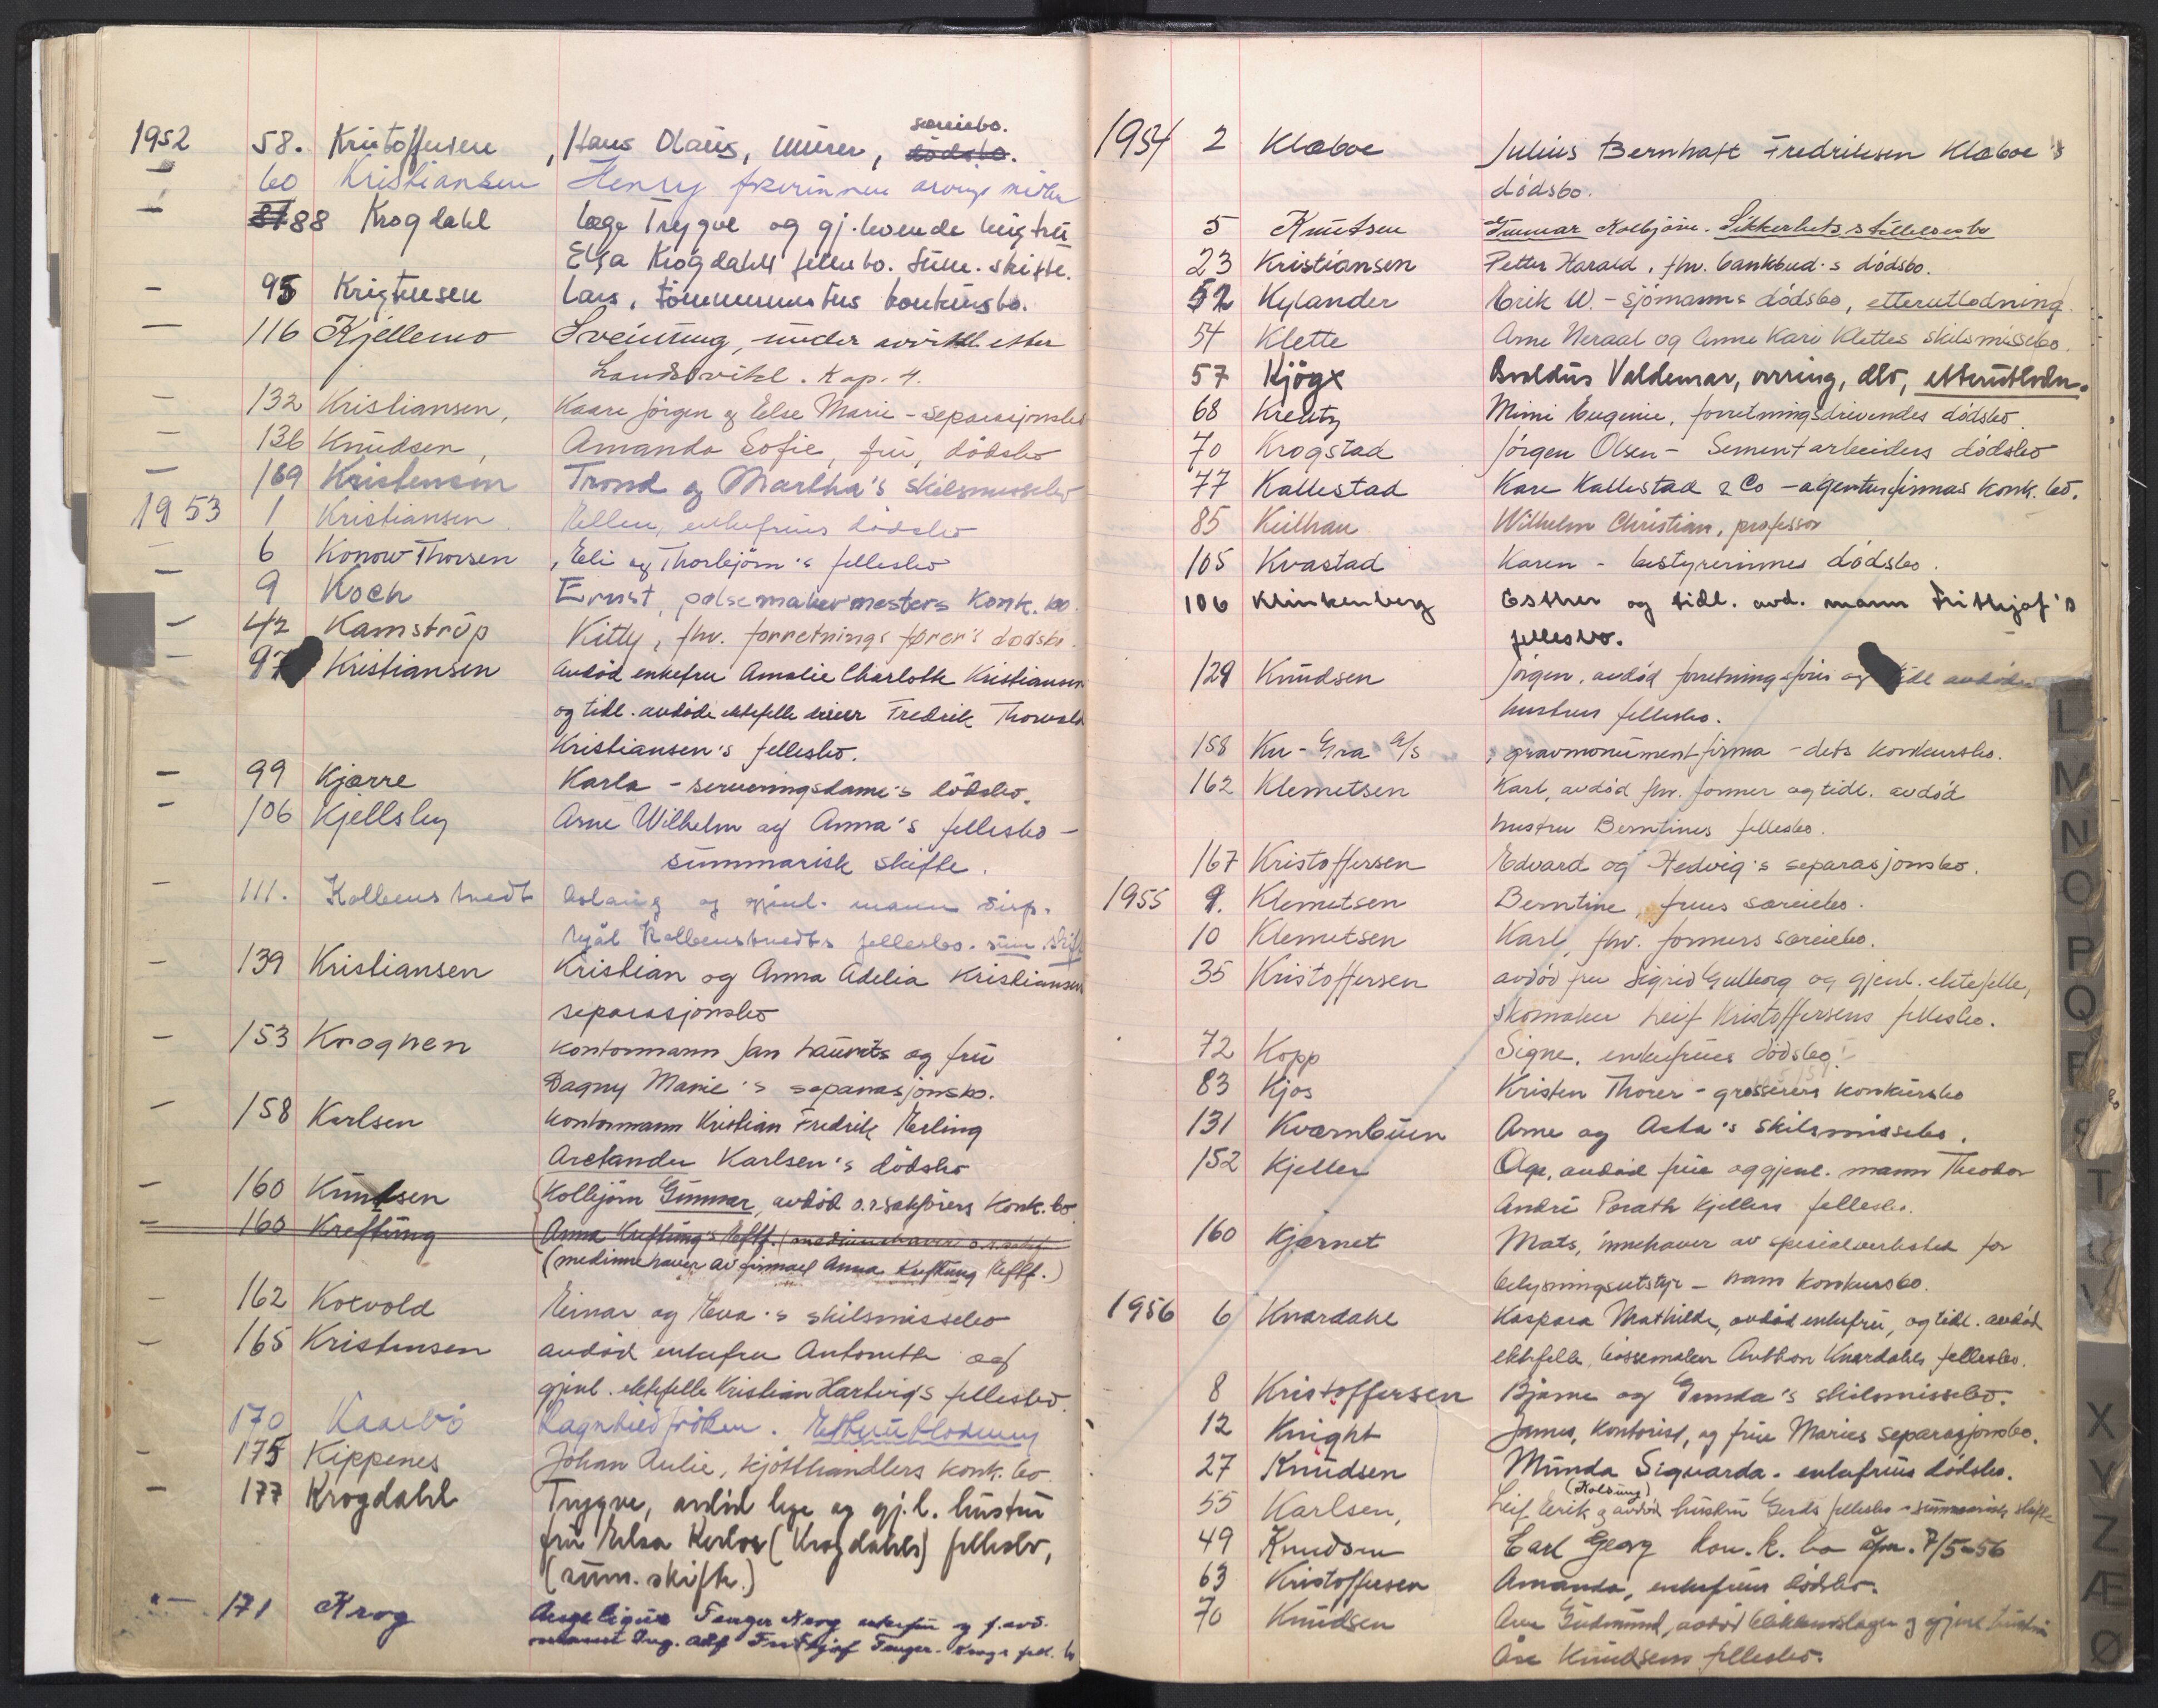 særeiebo.
1952 58. Kristoffersen, Hans Olaus, murer, dødsbo.
— 60 Kristiansen Henry arvinger midler
— 87 88 Krogdahl læge Trygve og gj.levende hustru
Elsa Krogdahls fellesbo. Sum. skifte.
— 95 Kristensen Lars, tömmermesters konkursbo.
— 116 Kjellemo Sveinung, under avvikl. etter
Landsvikl. Kap. 4.
— 132 Kristiansen, Kaare Jörgen og Else Marie - separasjonsbo
— 136 Knudsen, Amanda Sofie, fru, dödsbo
— 169 Kristensen Trond og Martha's skilsmissebo
1953 1 Kristiansen Ellen, enkefrues dödsbo
— 6 Konow Thorsen, Eli og Thorbjörn's fellesbo
— 9 Koch Ernst, pølsemakermesters Konk. bo.
— 42 Kamstrup Kitty, fhv. forretningsfører's dödsbo.
— 97 Kristiansen Avdöd enkefru Amalie Charlotte Kristiansen
og tidl. avdöde ektefelle Fredrik Thorvald
Kristiansen's fellesbo.
— 99 Kjærre Karla - serveringsdame's dödsbo.
— 106 Kjellsby Arne Wilhelm og Anna's fellesbo -
summarisk skifte.
— 111. Kolbenstvedt Aslaug og gjenl. mann disp.
Kolbenstvedts fellesbo. sum. skift
— 139 Kristiansen Kristian og Anna Adelia Kristiansen
separasjonsbo
— 153 Krognen Kontormann Jan Laurits og fru
Dagny Marie's separasjonsbo.
— 158 Karlsen Kontormann Kristian Fredrik Erling
Arctander Karlsen's dödsbo
— 160 Knudsen Kolbjörn Gunnar, avdöd o.r.sakförers Konk. bo
— 160 Krefting Anna Krefting's Eftf. (medinnehaver o.r.sakf
(medinnehaver av firmaet Anna Krefting Eftf.)
— 162 Koxvold Einar og Eva's skilsmissebo
— 165 Kristensen avdöd enkefru Antonette og
gjenl. ektefelle Kristian Hartvig's fellesbo.
170 Kaarbö Ragnhild fröken. Etterutlodning
— 175 Kippenes Johan Aulie, kjötthandlers konk. bo.
— 177 Krogdahl Trygve, avdöd lege og gj.l. hustru
fru Elsa (Krogdahls) fellesbo,
(sum. skifte.)
— 171 Krog Angelique Fenger Krog enkefru og f. avd.
Ing. Fridtjof Fenger-Krogs fell. bo
1954 2 Klæboe Julius Bernhaft Fredriksen Klæboe's
dödsbo.
5 Knutsen Gunnar Kolbjörn. Sikkerhetsstillelsesbo
23 Kristiansen Petter Harald, fhv. bankbud's dödsbo.
52 Kylander Erik W. - sjömanns dödsbo, etterutlodning.
54 Klette Arne Neraal og Anne Kari Klettes skilsmissebo.
57 Kjögx Valdemar, dbo, etterutlodn.
68 Kreutz Mimi Eugenie, forretningsdrivendes dödsbo.
70 Krogstad Jörgen Olsen - Sementarbeiders dödsbo
77 Kallestad Kare Kallestad & Co - agenturfirmas konk. bo.
85 Keilhau Wilhelm Christian, professor
105 Kvastad Karen - bestyrerinnes dödsbo.
106 Klinkenberg Esther og tidl. avd. mann Frithjof's
fellesbo.
129 Knudsen Jörgen, avdöd forretningsförer og tidl avdöde
hustrus fellesbo.
158 Ku-Gra A/S, gravmonumentfirma - dets konkursbo.
162 Klemetsen Karl, avdöd fhv. former og tidl. avdöd
hustru Berntines fellesbo.
167 Kristoffersen Edvard og Hedvig's separasjonsbo.
1955 9. Klemetsen Berntine, frues særeiebo.
10 Klemetsen Karl, fhv. formers særeiebo.
35 Kristoffersen avdöd fru Sigrid Gulborg og gjenl. ektefelle,
skomaker Leif Kristoffersens fellesbo.
72 Kopp Signe, enkefrues dödsbo
83 Kjos Kristen Thorer - grosserers konkursbo
131 Kværnbuen Arne og Asta's skilsmissebo.
152 Kjeller Olga, avdöd frue og gjenl. mann Theodor
André Parath Kjellers fellesbo.
160 Kjærnet Mats, innehaver av spesialverksted for
belysningsutstyr - hans konkursbo.
1956 6 Knardahl Kaspara Mathilde, avdöd enkefru, og tidl. avdöd
ektefelle, bössemaker Anthon Knardahls fellesbo.
8 Kristoffersen Bjarne og Gunda's skilsmissebo.
12 Knight James, kontorist, og frue Maries separasjonsbo.
27 Knudsen Munda Sigvarda - enkefrues dödsbo.
55 Karlsen, Leif Erik og avdöd hustru Gerds fellesbo - summarisk skifte
49 Knudsen Earl Georg kon.k. bo åpn. 7/5-56
63 Kristoffersen Amanda, enkefrues dödsbo.
70 Knudsen Arne Gudmund, avdöd blikkenslager og gjenl hustru
Åse Knudsens fellesbo.
L
M
N
O
P
Q
R
S
T
U
V
X
Y
Z
Æ
Ø